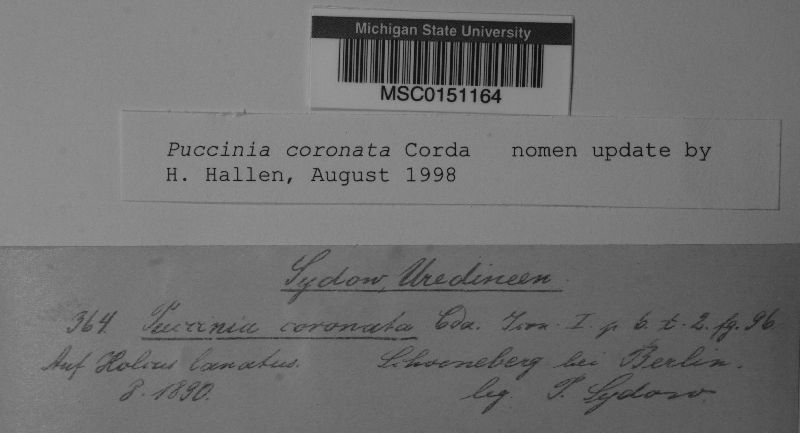 Michigan State University
MSC0151164
Puccinia coronata Corda nomen update by
H. Hallen, August 1998
Sydow, Uredineen.
364. Puccinia coronata Cda. Icon. I. p. 6. t. 2. fg. 96.
Auf Holcus lanatus. Schoeneberg bei Berlin.
8. 1890. leg. P. Sydow.